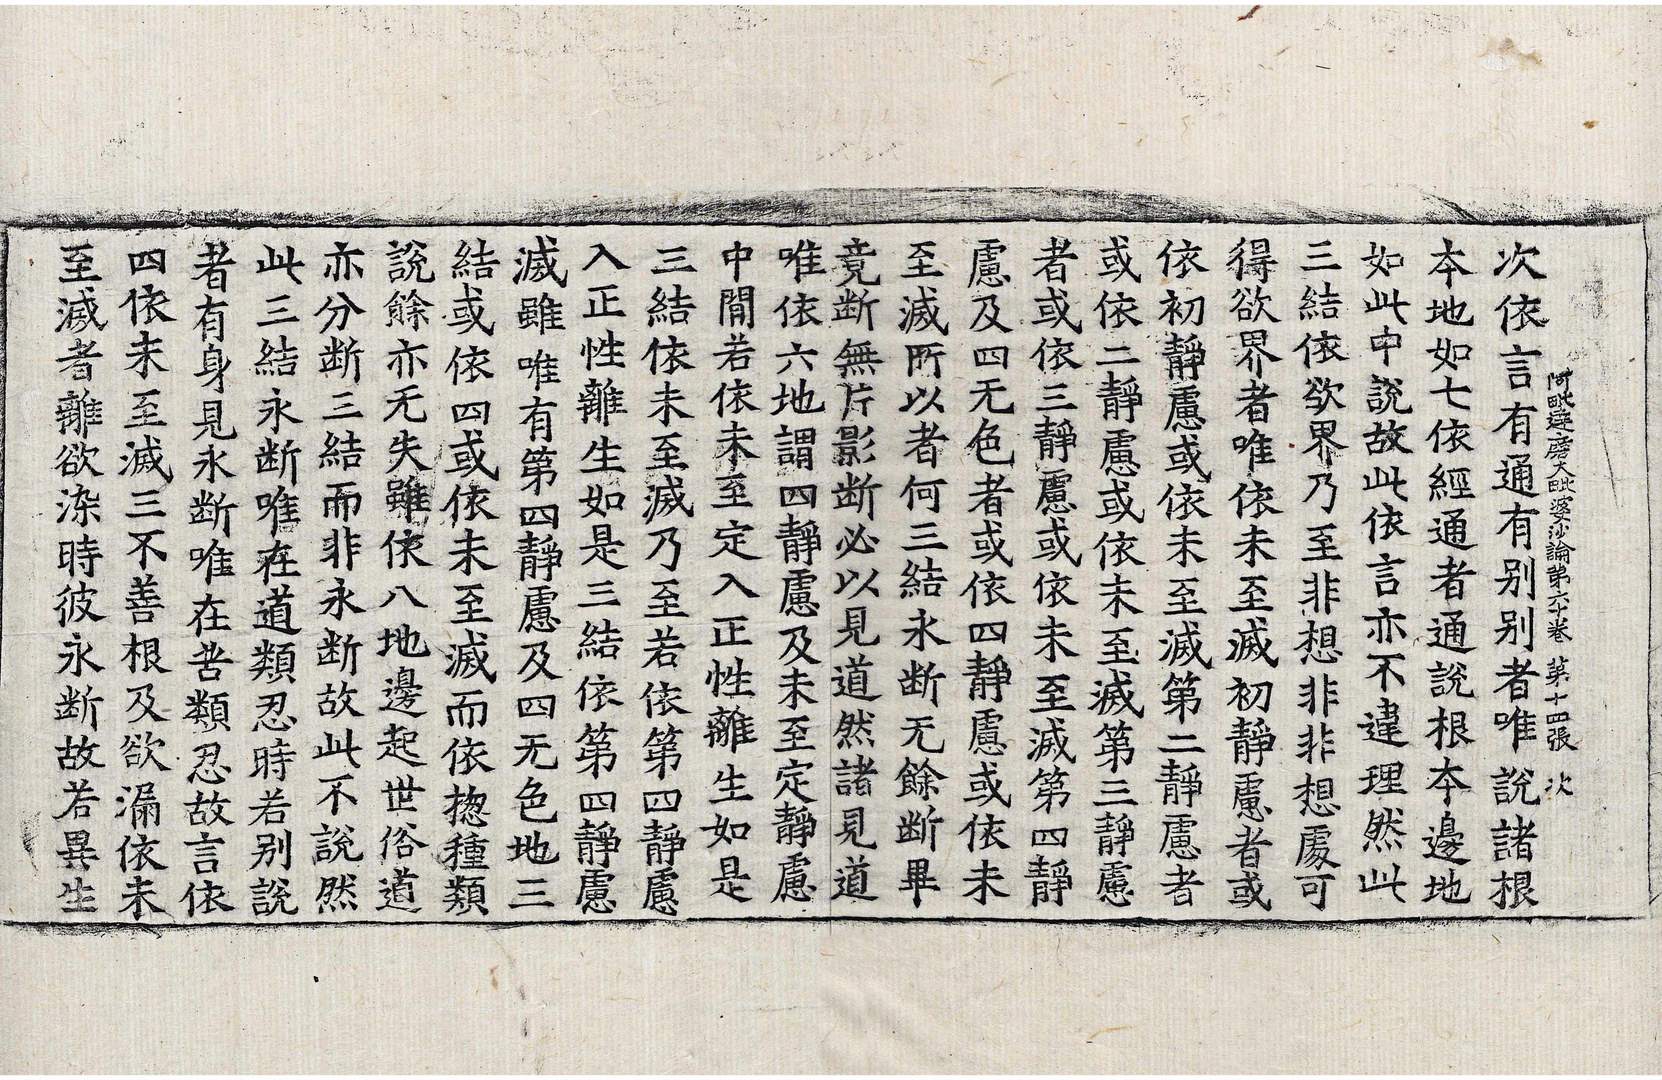 阿毗達磨大毗婆沙論第六十卷 第十四張 次
次依言有通有别别者唯說諸根
本地如七依經通者通說根本邊地
如此中說故此依言亦不違理然此
三結依欲界乃至非想非非想處可
得欲界者唯依未至滅初靜慮者或
依初靜慮或依未至滅第二靜慮者
或依二靜慮或依未至滅第三靜慮
者或依三靜慮或依未至滅第四靜
慮及四无色者或依四靜慮或依未
至滅所以者何三結永断无餘断畢
竟断無片影断必以見道然諸見道
唯依六地謂四靜慮及未至定靜慮
中閒若依未至定入正性離生如是
三結依未至滅乃至若依第四靜慮
入正性離生如是三結依第四靜慮
滅雖唯有第四靜慮及四无色地三
結或依四或依未至滅而依揔種類
說餘亦无失雖依八地邊起世俗道
亦分断三結而非永断故此不說然
此三結永断唯在道類忍時若别說
者有身見永断唯在苦類忍故言依
四依未至滅三不善根及欲漏依未
至滅者離欲染時彼永断故若異生